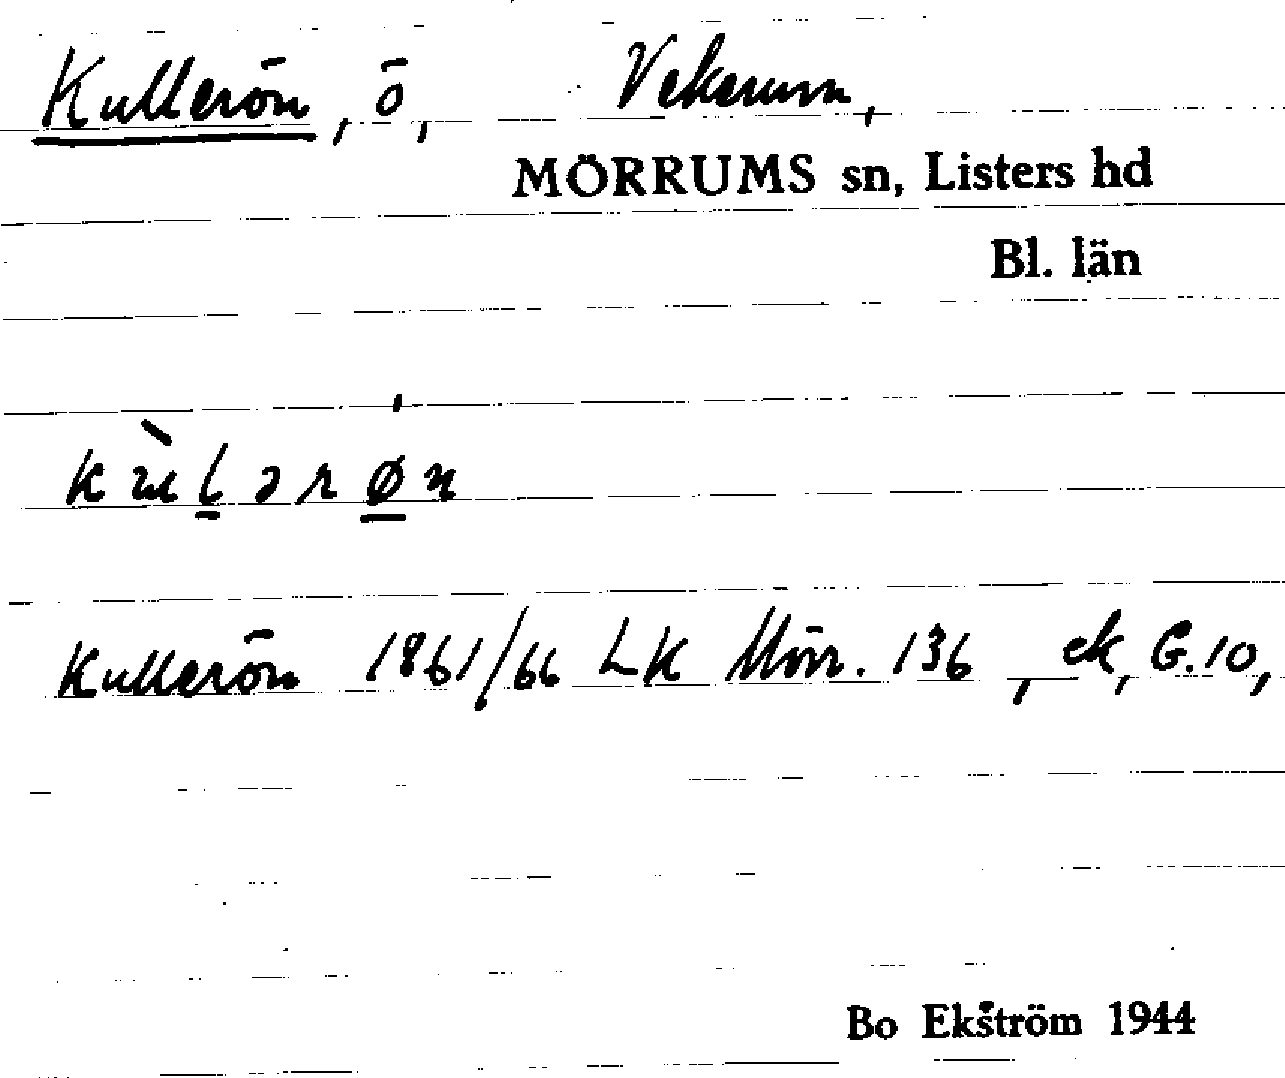 Kullerön, ö, Vekerum,
MÖRRUMS sn, Listers hd
Bl. län
Kullerön 1861/66 LK Mörr. 136, ek, G.10,
Bo Ekström 1944